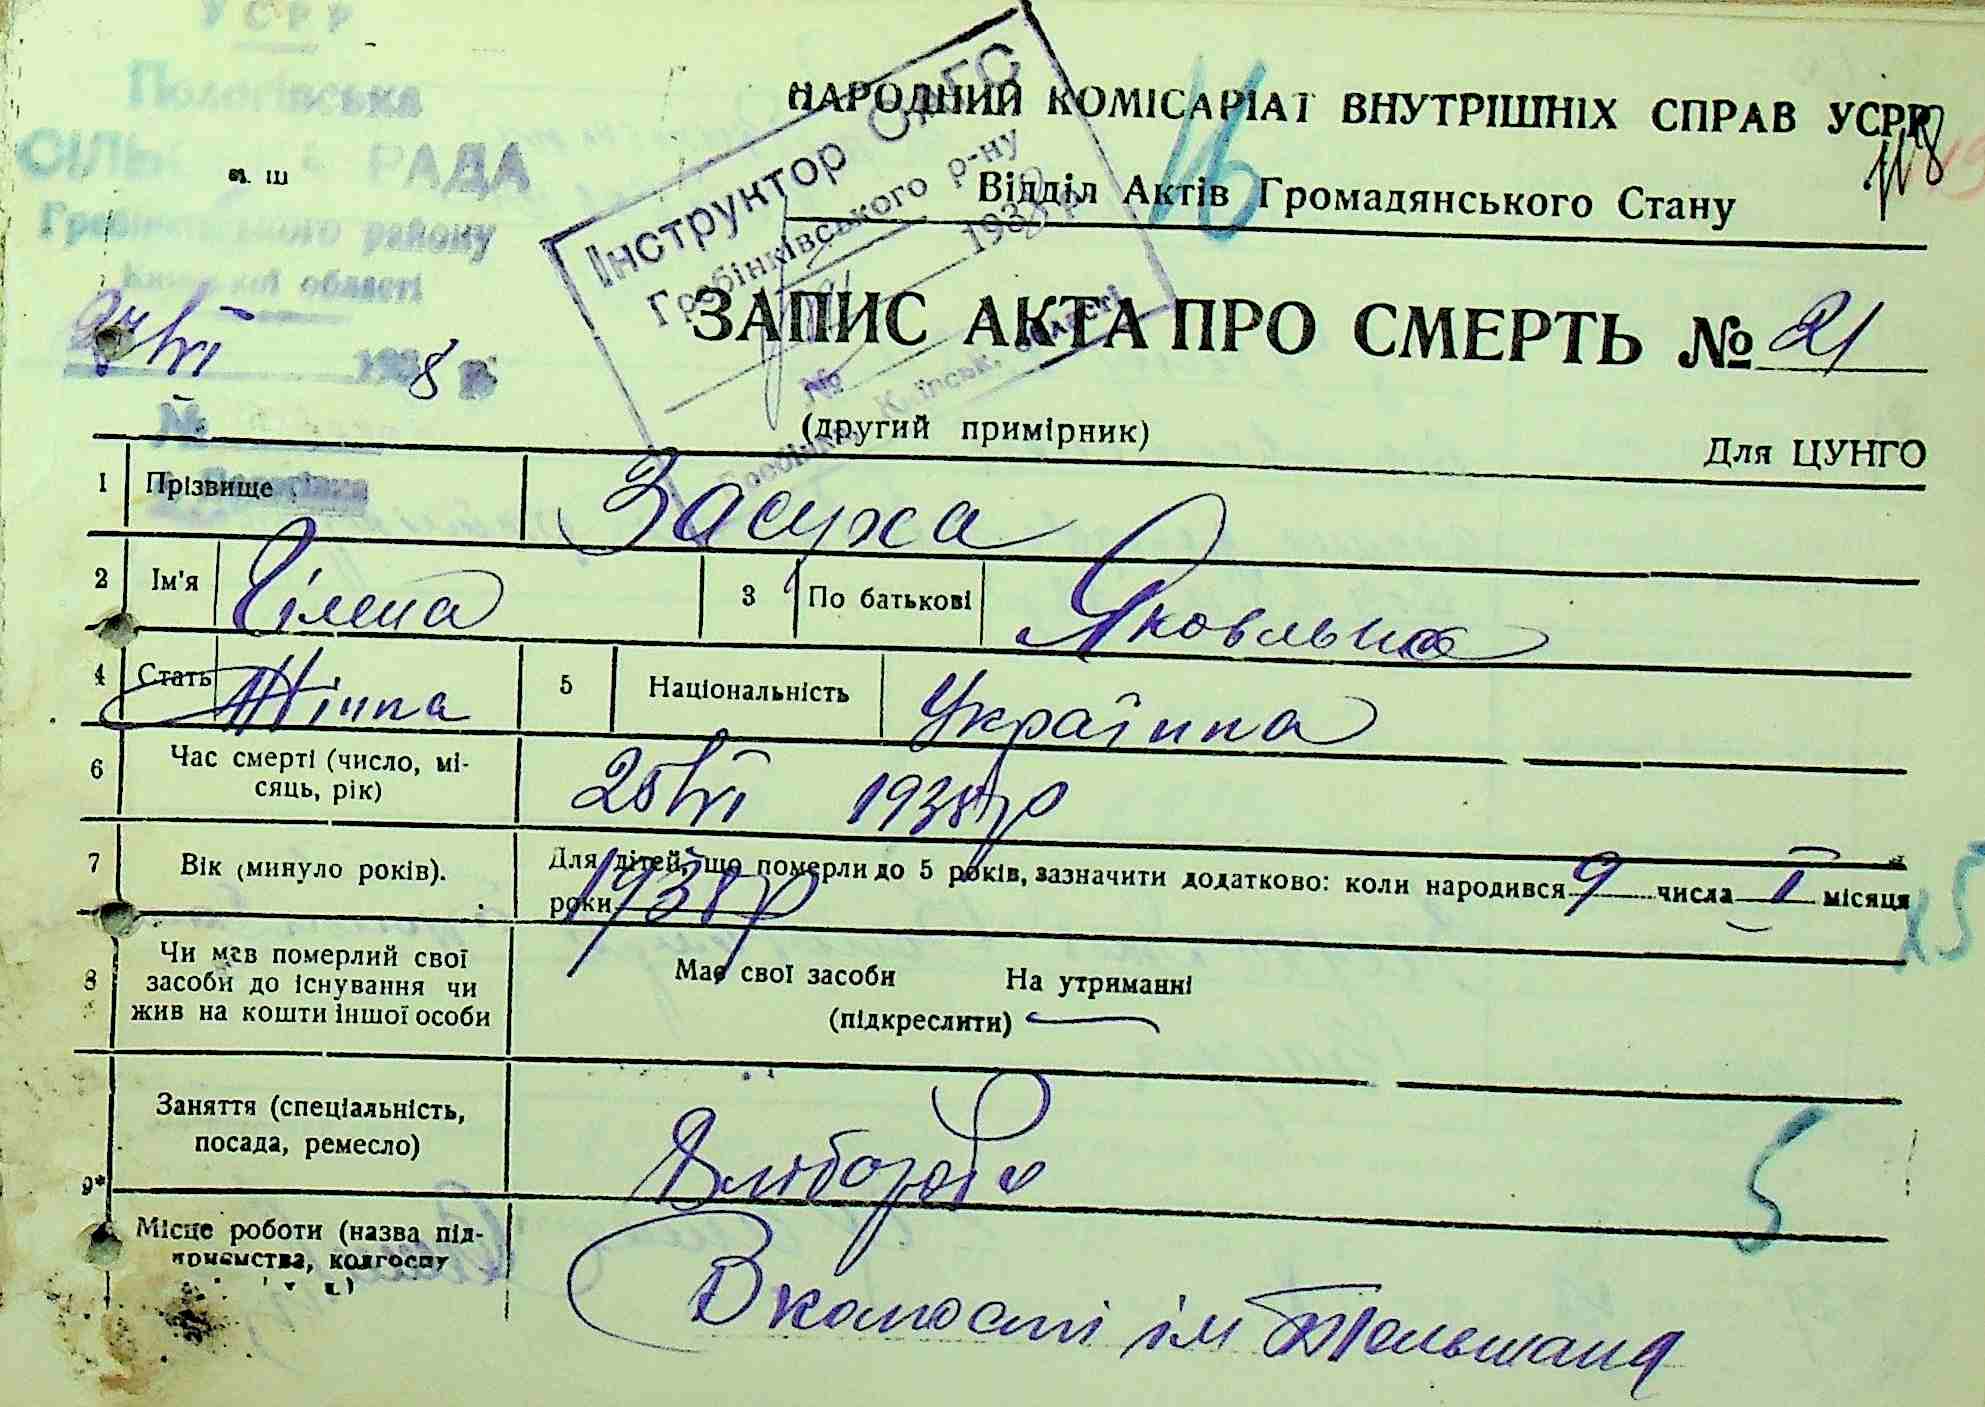 УСРР
Пологівська
СІЛЬСЬКА РАДА
Гребінківського району
Київської області
27/VI 1938 р.
№
Інструктор ОАГС
Гребінківського р-ну
193 р.
№
Київськ. області
НАРОДНИЙ КОМІСАРІАТ ВНУТРІШНІХ СПРАВ УСРР
118
16
Відділ Актів Громадянського Стану
ЗАПИС АКТА ПРО СМЕРТЬ № 21
(другий примірник)
Для ЦУНГО
1 Прізвище Засуха
2 Ім'я Гілена 3 По батькові Яковльна
4 Стать Жінна 5 Національність Українна
6 Час смерті (число, мі-
сяць, рік) 25/VI 1938 р
7 Вік (минуло років). Для дітей, що померли до 5 років, зазначити додатково: коли народився 9 числа I місяця
роки 1938 р
х5
8 Чи мав померлий свої
засоби до існування чи
жив на кошти іншої особи
Має свої засоби На утриманні
(підкреслити)
Заняття (спеціальність,
посада, ремесло) Хлібороби
5
9*
Місце роботи (назва під-
приємства, колгоспу
В колгоспі ім Тельмана